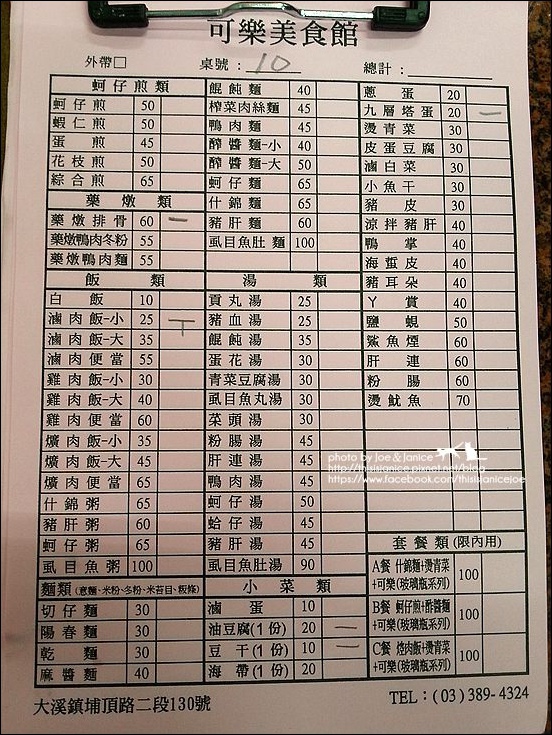 可樂美食館
外帶□ 桌號：10 總計：
蚵仔煎類
蚵仔煎 50
蝦仁煎 50
蛋煎 45
花枝煎 50
綜合煎 65
藥燉類
藥燉排骨 60 一
藥燉鴨肉冬粉 55
藥燉鴨肉麵 55
飯類
白飯 10
滷肉飯-小 25 丅
滷肉飯-大 35
滷肉便當 55
雞肉飯-小 30
雞肉飯-大 40
雞肉便當 60
爌肉飯-小 35
爌肉飯-大 45
爌肉便當 65
什錦粥 65
豬肝粥 60
蚵仔粥 65
虱目魚粥 100
麵類(意麵、米粉、冬粉、米苔目、粄條)
切仔麵 30
陽春麵 30
乾麵 30
麻醬麵 40
餛飩麵 40
榨菜肉絲麵 45
鴨肉麵 45
醡醬麵-小 40
醡醬麵-大 50
蚵仔麵 65
什錦麵 65
豬肝麵 60
虱目魚肚麵 100
湯類
貢丸湯 25
豬血湯 25
餛飩湯 35
蛋花湯 30
青菜豆腐湯 30
虱目魚丸湯 30
菜頭湯 30
粉腸湯 45
肝連湯 45
鴨肉湯 45
蚵仔湯 50
蛤仔湯 45
豬肝湯 45
虱目魚肚湯 90
小菜類
滷蛋 10
油豆腐(1份) 20 一
豆干(1份) 10 一
海帶(1份) 20
蔥蛋 20
九層塔蛋 20 一
燙青菜 30
皮蛋豆腐 30
滷白菜 30
小魚干 30
豬皮 30
涼拌豬肝 40
鴨掌 40
海蜇皮 40
豬耳朵 40
丫賞 40
鹽蜆 50
鯊魚煙 60
肝連 60
粉腸 60
燙魷魚 70
photo by Joe & Janice
http://thisisjanice.pixnet.net/blog
https://www.facebook.com/thisisjanicejoe
套餐類(限內用)
A餐 什錦麵+燙青菜
+可樂(玻璃瓶系列) 100
B餐 蚵仔煎+酢醬麵
+可樂(玻璃瓶系列) 100
C餐 焢肉飯+燙青菜
+可樂(玻璃瓶系列) 100
大溪鎮埔頂路二段130號 TEL：(03)389-4324